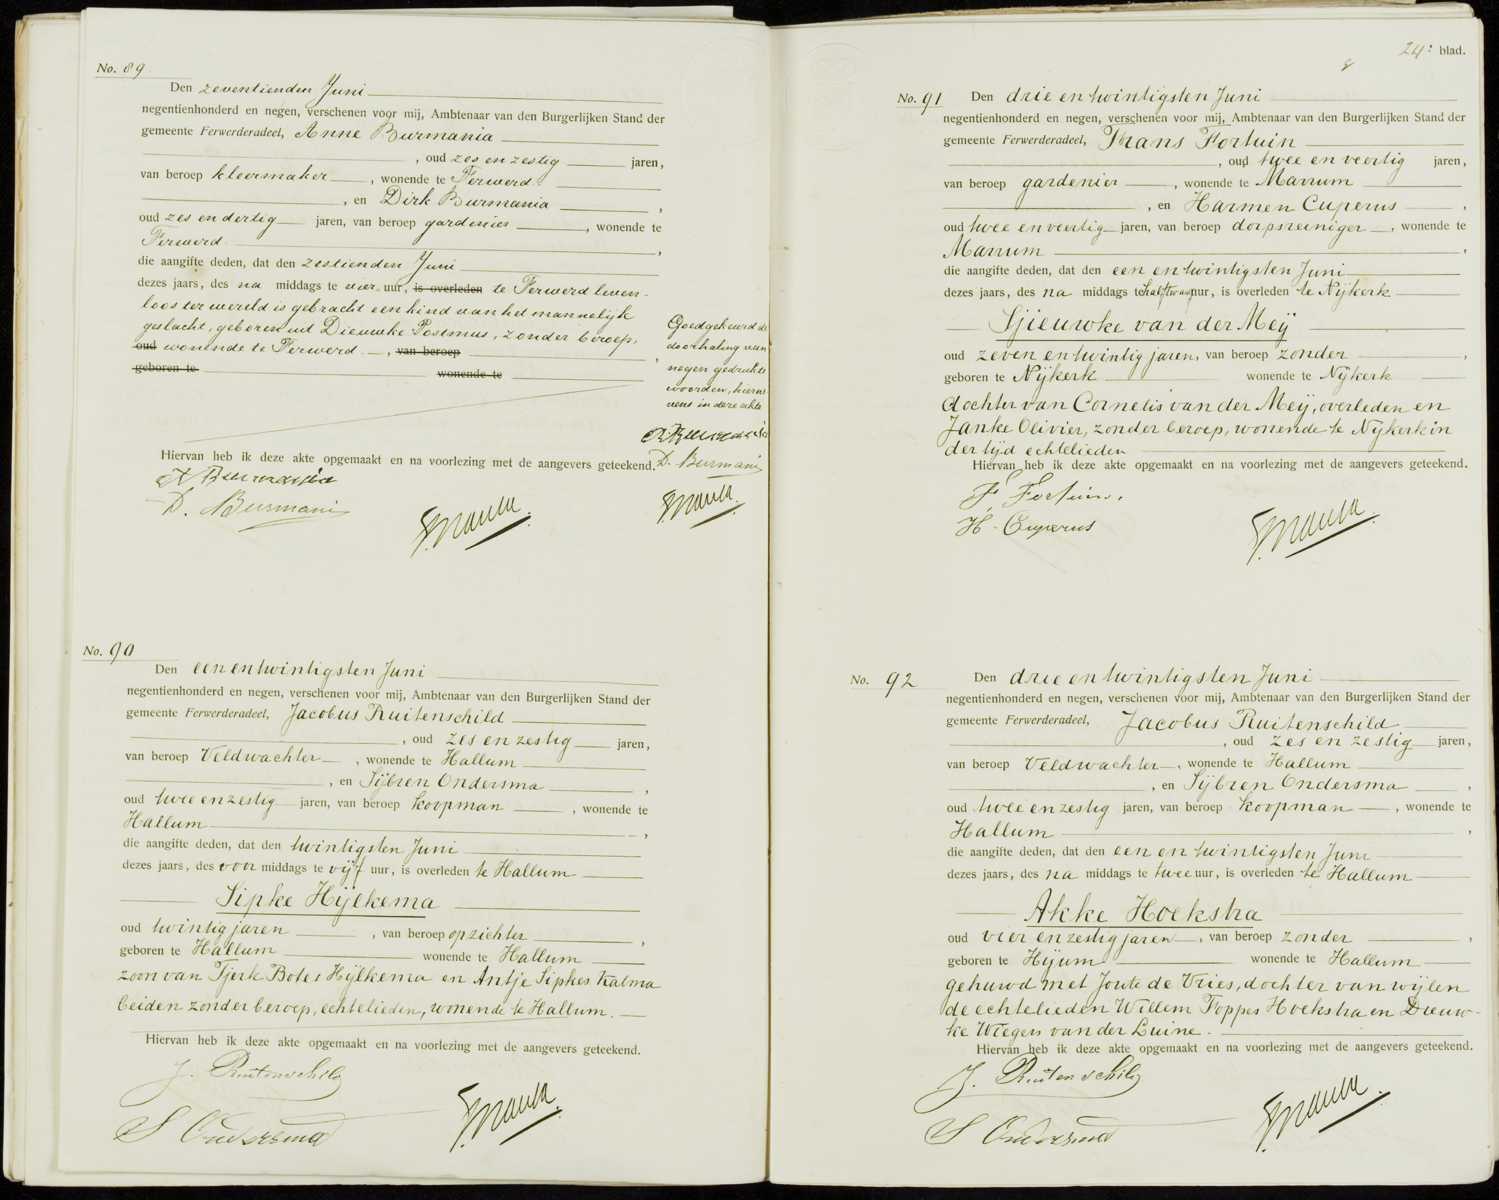 No. 89
Den zeventienden Juni
negentienhonderd en negen, verschenen voor mij, Ambtenaar van den Burgerlijken Stand der
gemeente Ferwerderadeel, Anne Burmania
, oud zes en zestig jaren,
van beroep kleermaker, wonende te Ferwerd
, en Dirk Burmania,
oud zes en dertig jaren, van beroep gardenier, wonende te
Ferwerd,
die aangifte deden, dat den zestienden Juni
dezes jaars, des na middags te vier uur, is overleden te Ferwerd leven-
loos ter wereld is gebracht een kind van het mannelijk
geslacht, geboren uit Dieuwke Postmus, zonder beroep,
oud wonende te Ferwerd, van beroep,
geboren te wonende te
Goedgekeurd de
doorhaling van
negen gedrukte
woorden, hierne
vens in deze akte
A Burmania
D. Burmania
Hiervan heb ik deze akte opgemaakt en na voorlezing met de aangevers geteekend.
A Burmania
D. Burmania
No. 90
Den een en twintigsten Juni
negentienhonderd en negen, verschenen voor mij, Ambtenaar van den Burgerlijken Stand der
gemeente Ferwerderadeel, Jacobus Ruitenschild
, oud zes en zestig jaren,
van beroep Veldwachter, wonende te Hallum
, en Sijbren Ondersma,
oud twee en zestig jaren, van beroep koopman, wonende te
Hallum,
die aangifte deden, dat den twintigsten Juni
dezes jaars, des voor middags te vijf uur, is overleden te Hallum
Sipke Hijlkema
oud twintig jaren, van beroep opzichter,
geboren te Hallum wonende te Hallum
zoon van Tjerk Botes Hijlkema en Antje Sipkes Kalma
beiden zonder beroep, echtelieden, wonende te Hallum.
Hiervan heb ik deze akte opgemaakt en na voorlezing met de aangevers geteekend.
J. Ruitenschild
S Ondersma
24: blad.
No. 91 Den drie en twintigsten Juni
negentienhonderd en negen, verschenen voor mij, Ambtenaar van den Burgerlijken Stand der
gemeente Ferwerderadeel, Frans Fortuin
, oud twee en veertig jaren,
van beroep gardenier, wonende te Marrum
, en Harmen Cuperus,
oud twee en veertig jaren, van beroep dorpsreiniger, wonende te
Marrum,
die aangifte deden, dat den een en twintigsten Juni
dezes jaars, des na middags te half twaalf uur, is overleden te Nijkerk
Sjieuwke van der Meij
oud zeven en twintig jaren, van beroep zonder,
geboren te Nijkerk wonende te Nijkerk
dochter van Cornelis van der Meij, overleden en
Janke Olivier, zonder beroep, wonende te Nijkerk in
der tijd echtelieden
Hiervan heb ik deze akte opgemaakt en na voorlezing met de aangevers geteekend.
F. Fortuin.
H. Cuperus
No. 92 Den drie en twintigsten Juni
negentienhonderd en negen, verschenen voor mij, Ambtenaar van den Burgerlijken Stand der
gemeente Ferwerderadeel, Jacobus Ruitenschild
, oud zes en zestig jaren,
van beroep Veldwachter, wonende te Hallum
, en Sijbren Ondersma,
oud twee en zestig jaren, van beroep koopman, wonende te
Hallum,
die aangifte deden, dat den een en twintigsten Juni
dezes jaars, des na middags te twee uur, is overleden te Hallum
Akke Hoekstra
oud vier en zestig jaren, van beroep zonder,
geboren te Hijum wonende te Hallum
gehuwd met Joute de Vries, dochter van wijlen
de echtelieden Willem Foppes Hoekstra en Dieuw-
ke Wiegers van der Luine.
Hiervan heb ik deze akte opgemaakt en na voorlezing met de aangevers geteekend.
J. Ruitenschild
S Ondersma